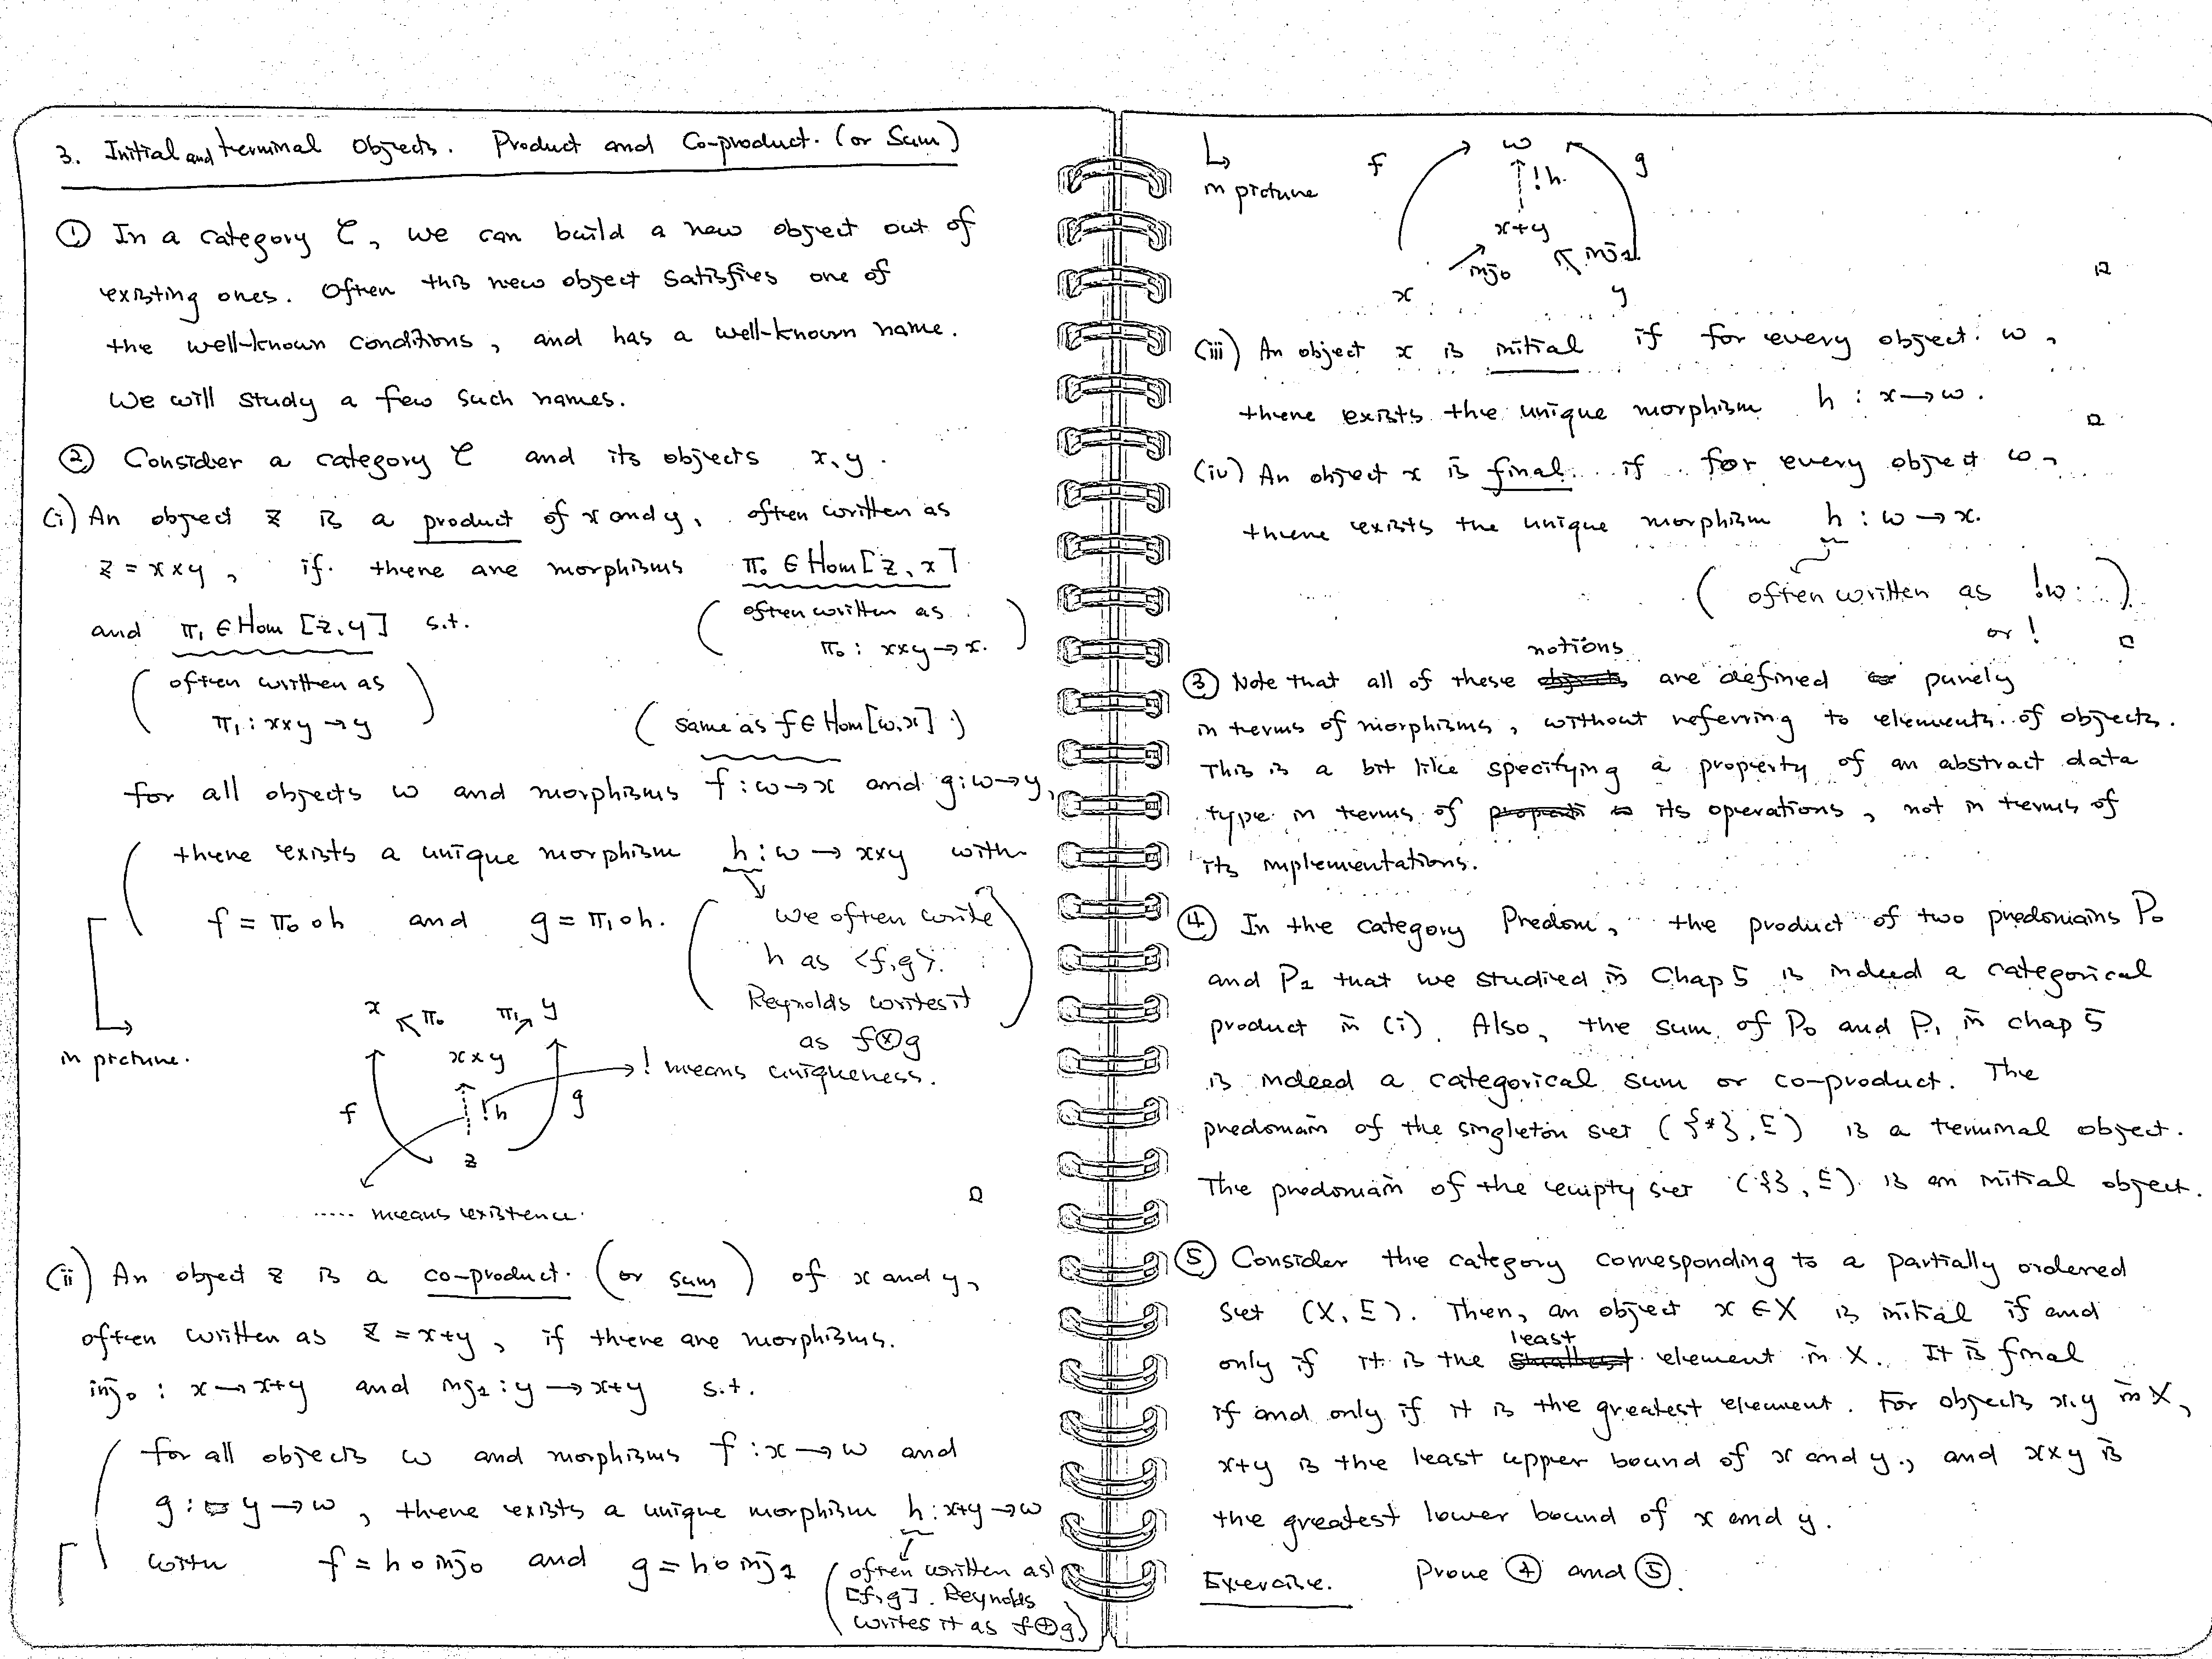 3. Initial and terminal Objects. Product and Co-product. (or Sum)
① In a category C, we can build a new object out of
existing ones. Often this new object satisfies one of
the well-known conditions, and has a well-known name.
We will study a few such names.
② Consider a category C and its objects x, y.
(i) An object z is a product of x and y, often written as
z = x×y, if there are morphisms π₀ ∈ Hom[z, x]
(often written as
π₀ : x×y → x.)
and π₁ ∈ Hom [z, y] s.t.
(often written as
π₁ : x×y → y)
(same as f ∈ Hom[w, x].)
for all objects w and morphisms f : w → x and g : w → y,
there exists a unique morphism h : w → x×y with
f = π₀ ∘ h and g = π₁ ∘ h.
(we often write
h as <f, g>.
Reynolds writes it
as f⊗g)
in picture.
x π₀ π₁ y
x×y
! means uniqueness.
f !h g
z
..... means existence.
(ii) An object z is a co-product (or sum) of x and y,
often written as z = x+y, if there are morphisms.
inj₀ : x → x+y and inj₁ : y → x+y s.t.
for all objects w and morphisms f : x → w and
g : y → w, there exists a unique morphism h : x+y → w
with f = h ∘ inj₀ and g = h ∘ inj₁
(often written as
[f, g]. Reynolds
writes it as f⊕g)
in picture
f w g
!h.
x+y
inj₀ inj₁
x y
(iii) An object x is initial if for every object w,
there exists the unique morphism h : x → w.
(iv) An object x is final if for every object w,
there exists the unique morphism h : w → x.
(often written as !w
or !)
③ Note that all of these notions are defined purely
in terms of morphisms, without referring to elements of objects.
This is a bit like specifying a property of an abstract data
type in terms of its operations, not in terms of
its implementations.
④ In the category Predom, the product of two predomains P₀
and P₁ that we studied in Chap 5 is indeed a categorical
product in (i). Also, the sum of P₀ and P₁ in chap 5
is indeed a categorical sum or co-product. The
predomain of the singleton set ({*}, ⊑) is a terminal object.
The predomain of the empty set ({}, ⊑) is an initial object.
⑤ Consider the category corresponding to a partially ordered
set (X, ⊑). Then, an object x ∈ X is initial if and
only if it is the least element in X. It is final
if and only if it is the greatest element. For objects x, y in X,
x+y is the least upper bound of x and y, and x×y is
the greatest lower bound of x and y.
Exercise. Prove ④ and ⑤.